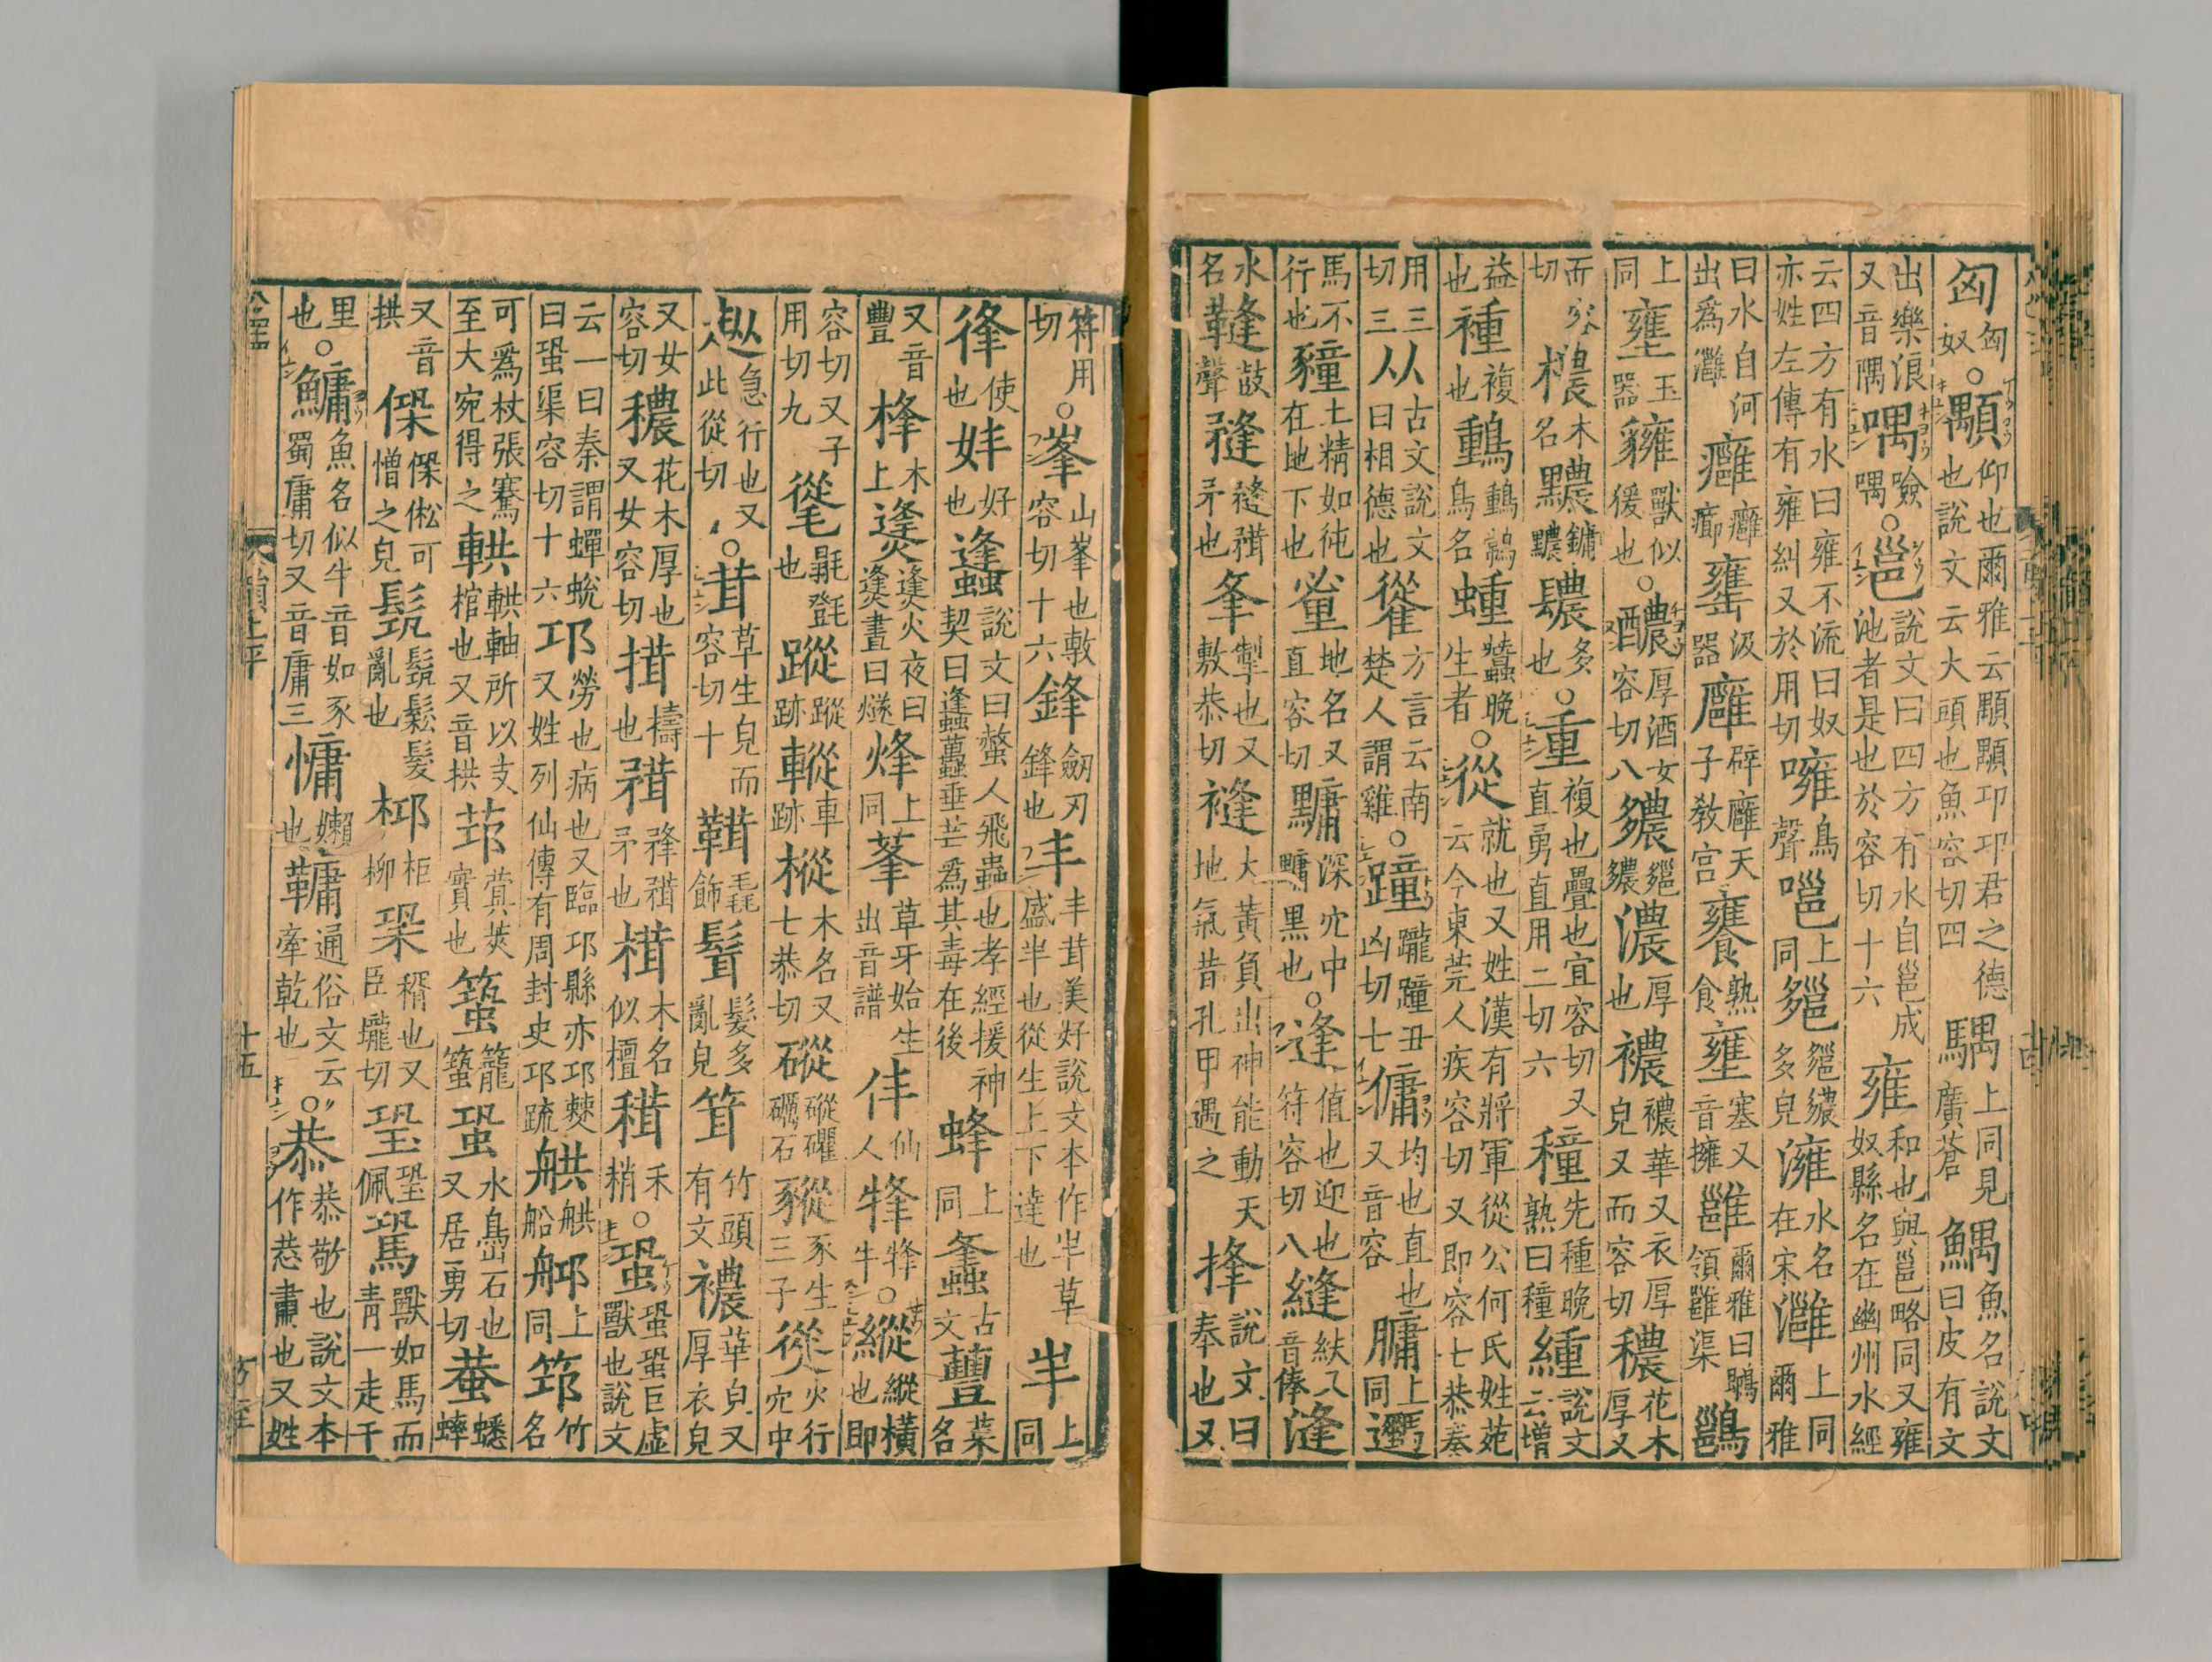 匈匈奴○顒仰也爾雅云顒顒卬卬君之德也說文云大頭也魚容切四 騆上同見廣蒼 鰅魚名說文曰皮有文
出樂浪又音隅 喁噞喁○邕說文曰四方有水自邕成池者是也於容切十六 雍和也與邕略同又雍奴縣名在幽州水經
云四方有水曰雍不流曰奴亦姓左傳有雍糾又於用切 噰鳥聲 嗈上同 䝔䝔繷多皃 澭水名在宋 灉上同爾雅
曰水自河出爲灉 癰癰癤 罋汲器 廱辟廱天子敎宮 饔熟食 壅塞又音擁 雝爾雅曰鵖領雝渠 鷈
上同 㙲玉器 㺎獸似猨也○醲厚酒女容切八 繷䝔繷 濃厚也 襛襛華又衣厚皃又而容切 穠花木厚又
而容切 檂木名 䵜鏞䵜 𨲳多也○重複也疊也宜容切又直勇直用二切六 種先種晚熟日種 緟說文云增
益也 褈複也 鸗鸗鶵鳥名 蝩蠶晚生者○從就也又姓漢有將軍從公何氏姓苑云今東莞人疾容切又即容七恭秦
用三切三 从古文說文曰相德也 䧺方言云南楚人謂雞○蹱躘蹱丑凶切七 傭均也直也又音容 𦟛上同 𨘤
馬不行也 𧳆土精如㹠在地下也 𥫂地名又直容切 黷深穴中黷黑也○逢值也迎也符容切八 縫紩又音俸 漨
水名 韸鼓聲 䂫䂫䂎矛也 夆掣也又敷恭切 䙜大黃負山神能動天地氣昔孔甲遇之 捀說文曰奉也又
符用切○峯山峯也敷容切十六 鋒劒刃鋒也 丰丰茸美好說文本作𡴀草盛丰也從生上下達也 𡴀上同
㣔使也 妦好也 䗬說文曰螫人飛蟲也孝經援神契曰䗬蠆垂芒爲其毒在後 蜂上同 𧒒古文 蘴菜名
又音豐 桻木上 㷭㷭火夜曰㷭晝曰燧 烽上同 莑草牙始生出音譜 仹仙人 犎犎牛○縱縱橫也即
容切又子用切九 𣯨毾㲪也 蹤蹤跡 䡮車跡 樅木名又七恭切 磫磫礭礪石 豵豕生三子 熧火行穴中
𧺣急行也又此從切○茸草生皃而容切十 鞲毳飾 髶髮多亂皃 䇯竹頭有文 襛華皃又厚衣皃
又女容切 穠花木厚也又女容切 搑擣也 䂎䂫䂎矛也 榵木名似檀 䅰禾稍○蛩蛩蛩巨虛獸也說文
云一曰秦謂蟬蛻曰蛩渠容切十六 邛勞也病也又臨邛縣亦邛㯤又姓列仙傳有周封史邛疏 䑪䑪船 䑣上同 筇竹名
可爲杖張騫至大宛得之 輁輁軸所以支棺也又音拱 䓖蓂莢實也 䈬籠䈬 巩水島嵒石也又居勇切 蛬蟋蟀
又音拱 㤨㤨倯可憎之皃 䯪䯪鬆髮亂也 桏柜柳 𣏺穯也又臣隴切 㺬㺬佩 𩢴獸如馬而青一走千
里也○鱅魚名似牛音如豕蜀庸切又音庸三 慵嬾也 𩌨通俗文云牽乾也○恭恭敬也說文本作㳟肅也又姓
十五